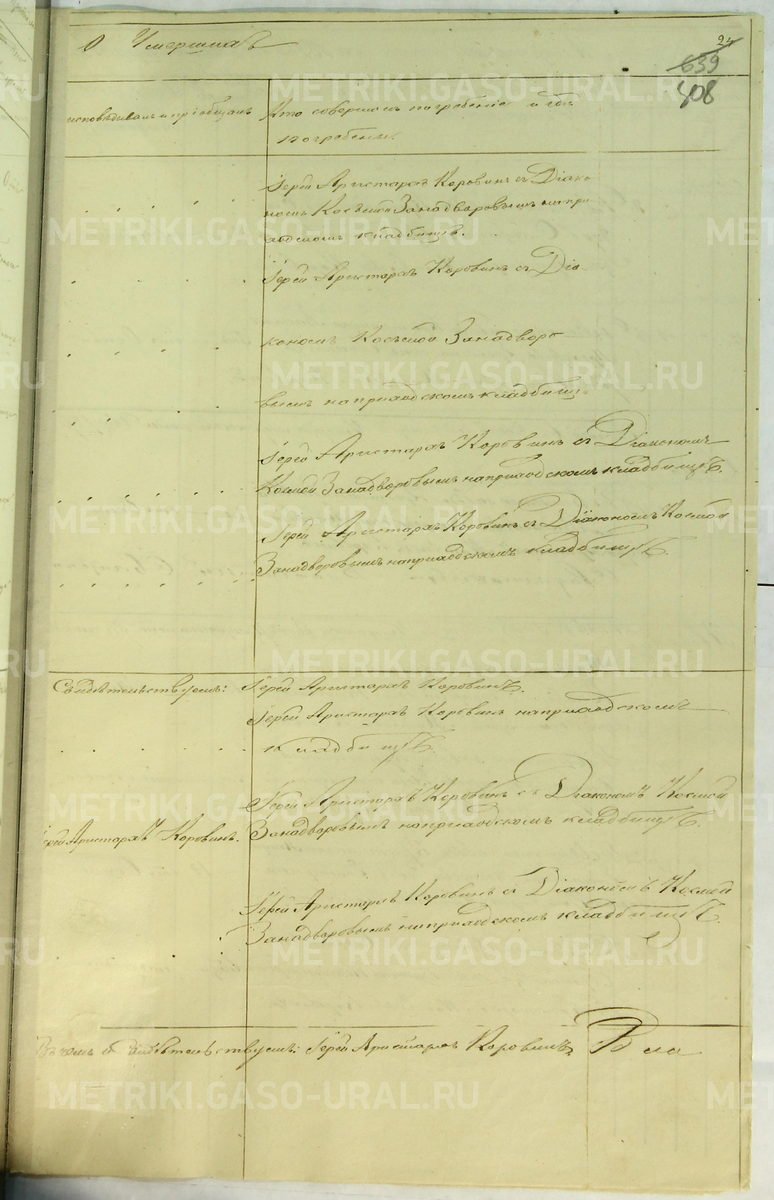 О Умершихъ
24
639
408
исповѣдывалъ и пріобщалъ
Кто совершалъ погребеніе и гдѣ
погребены.
Іерей Аристархъ Коровинъ съ Діако-
номъ Косьмою Занадворовымъ на при-
ходскомъ кладбищѣ.
Іерей Аристархъ Коровинъ съ Діа-
кономъ Косьмою Занадворо-
вымъ на приходскомъ кладбищѣ
Іерей Аристархъ Коровинъ съ Діакономъ
Космой Занадворовымъ на приходскомъ кладбищѣ.
Іерей Аристархъ Коровинъ съ Діакономъ Космой
Занадворовымъ на приходскомъ кладбищѣ.
Свидѣтельствуемъ: Іерей Аристархъ Коровинъ.
Іерей Аристархъ Коровинъ на приходскомъ
кладбищѣ.
Іерей Аристархъ Коровинъ съ Діакономъ Космой
Іерей Аристархъ Коровинъ. Занадворовымъ на приходскомъ кладбищѣ.
Іерей Аристархъ Коровинъ съ Діакономъ Космой
Занадворовымъ на приходскомъ кладбищѣ.
свидѣтельствуемъ: Іерей Аристархъ Коровинъ
METRIKI.GASO-URAL.RU